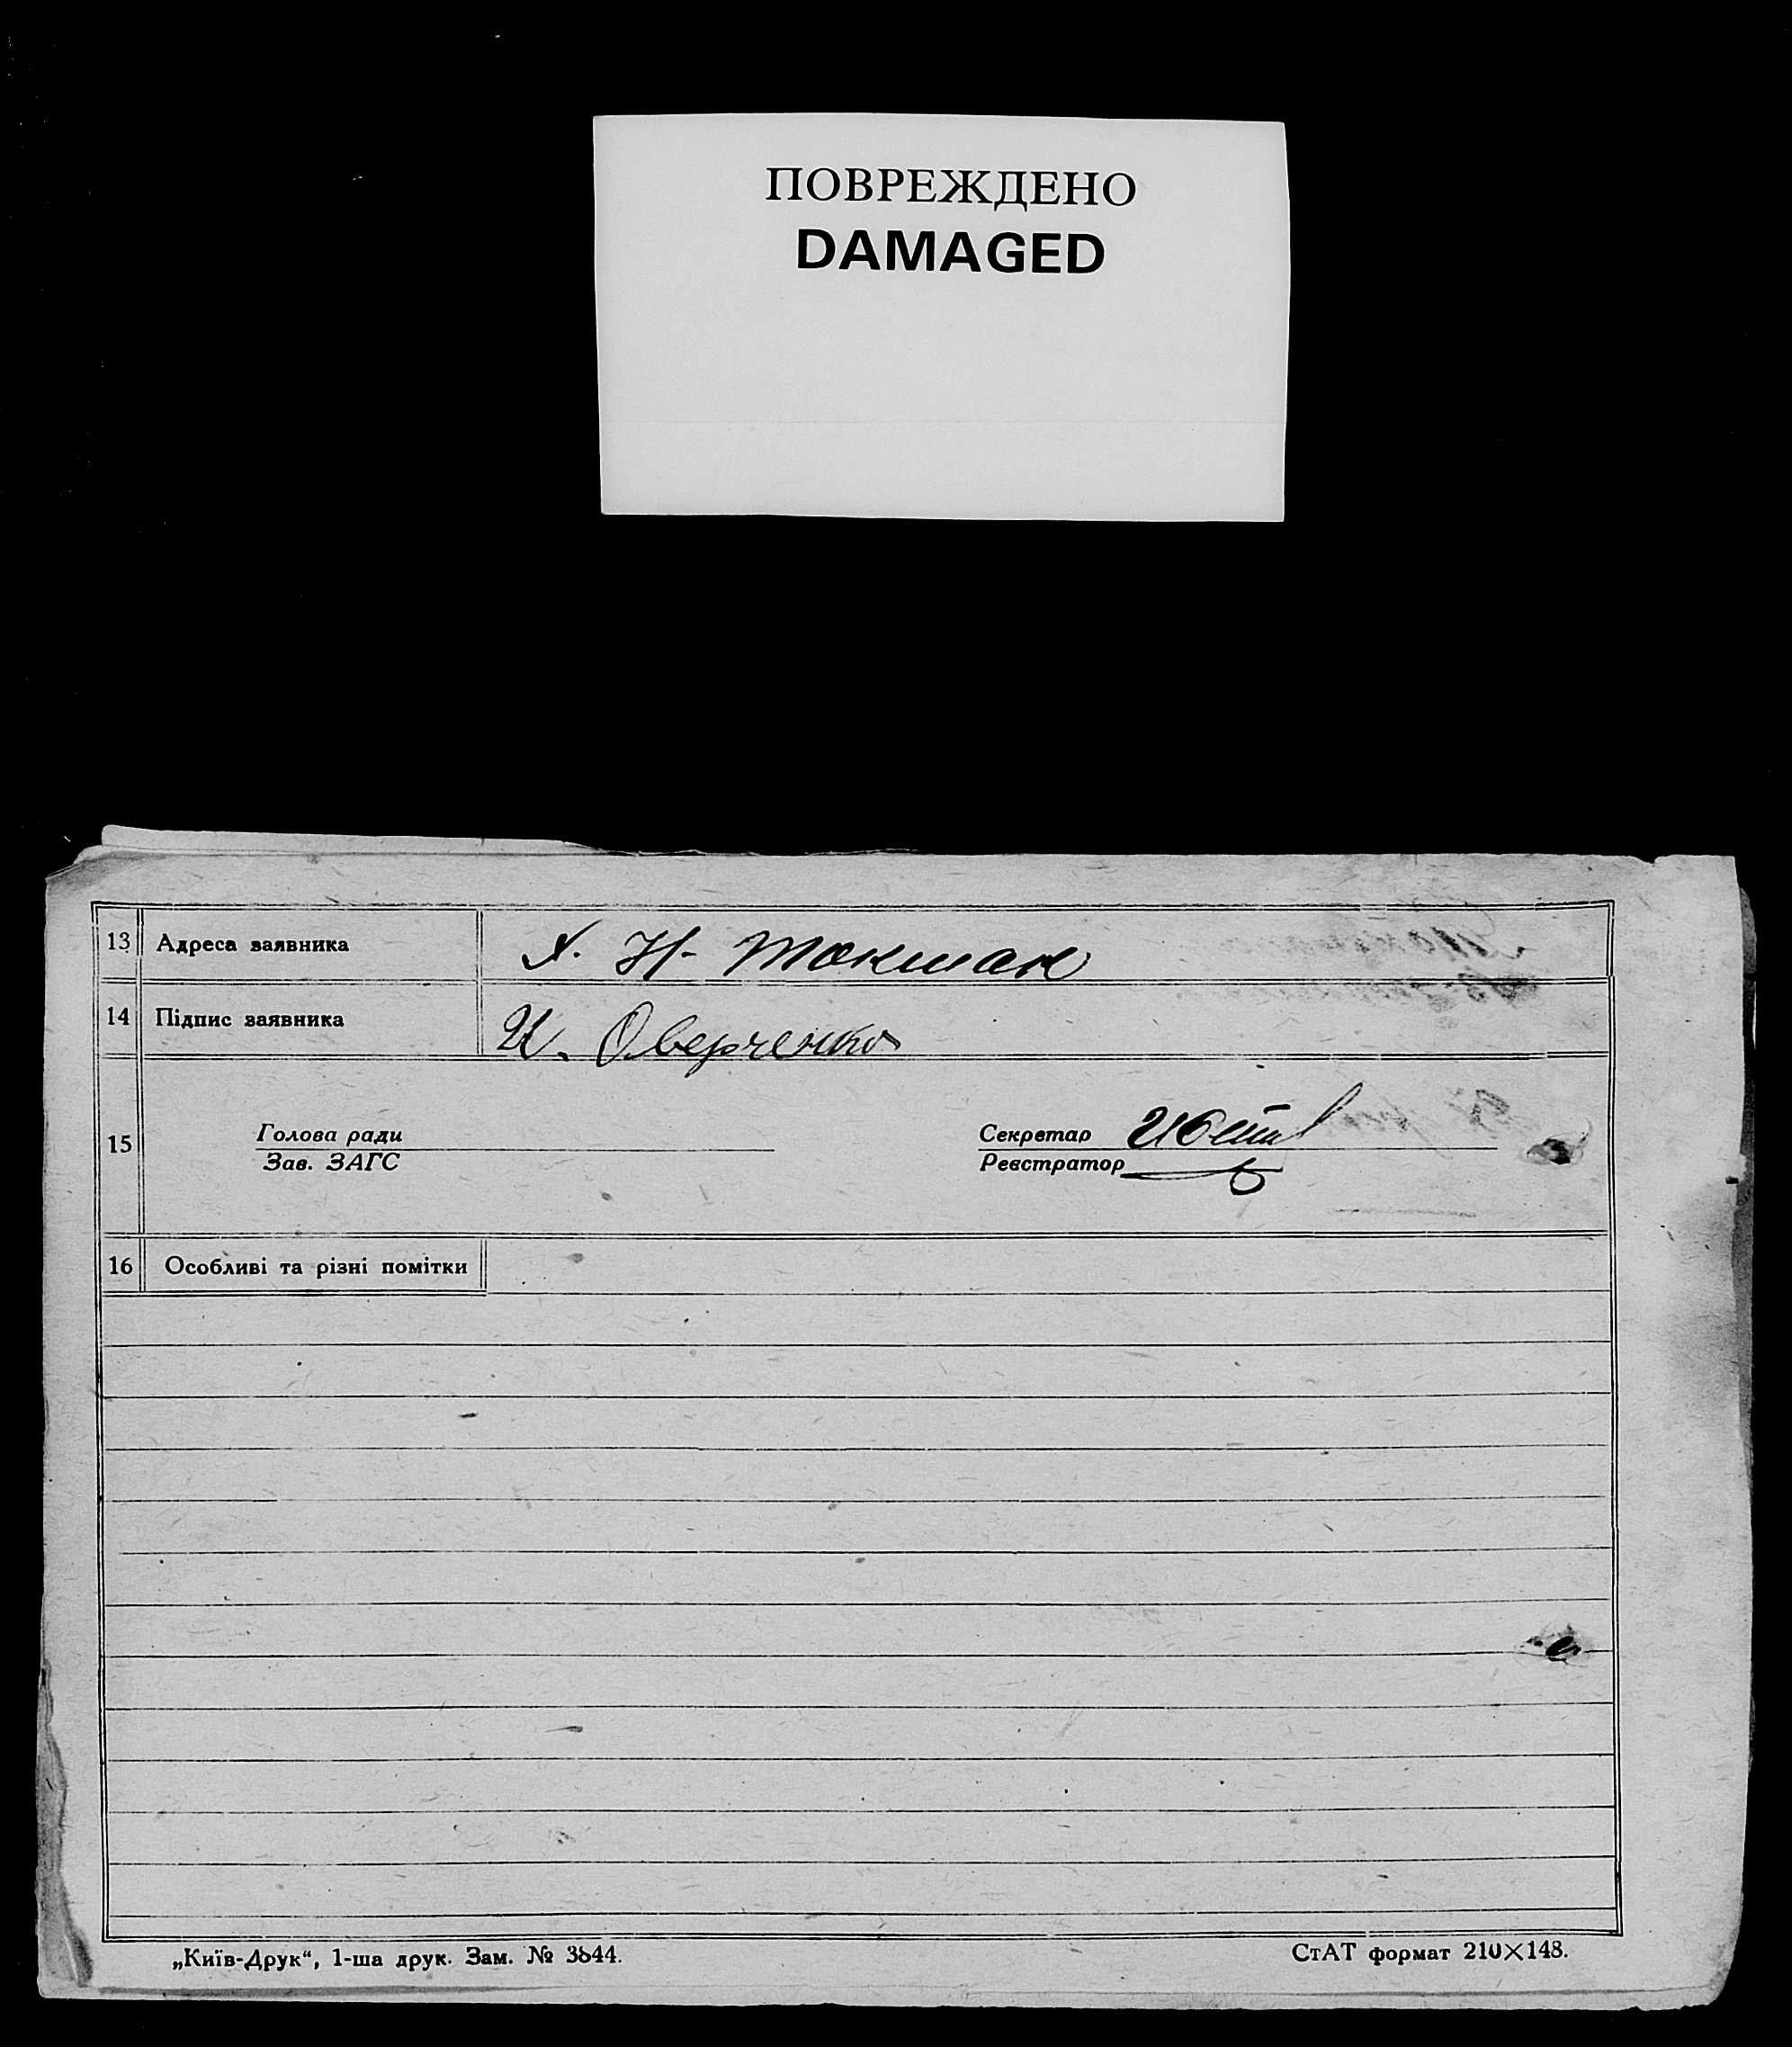 ПОВРЕЖДЕНО
DAMAGED
13 Адреса заявника Х. Н- Токмак
14 Підпис заявника И. Оверченко
15 Голова ради Секретар
Зав. ЗАГС Реєстратор
16 Особливі та різні помітки
„Київ-Друк“, 1-ша друк. Зам. № 3844.
СтАТ формат 210×148.